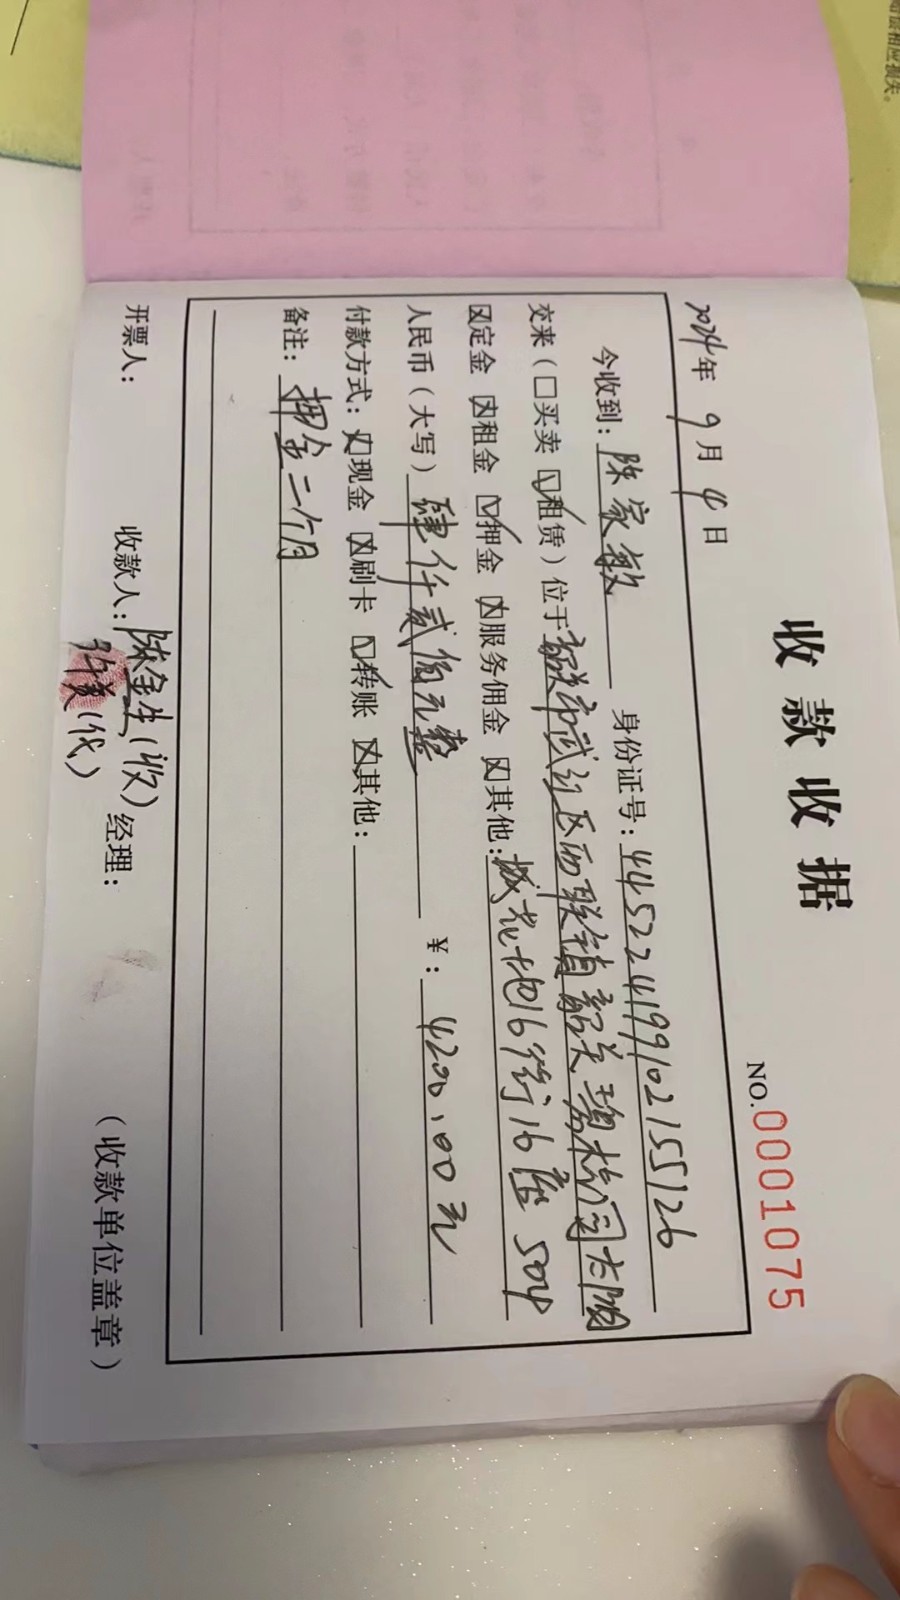 收款收据
NO.0001075
2024年9月4日
今收到：陈家敏 身份证号：445224199102155126
交来（□买卖 ☑租赁）位于韶关市武江区西联镇韶关碧桂园太阳
☒定金 ☒租金 ☑押金 ☒服务佣金 ☒其他：城花地16街16座504
人民币（大写）肆仟贰佰元整 ¥：4200.00元
付款方式：☒现金 ☒刷卡 ☑转账 ☒其他：
备注：押金二个月
开票人： 收款人：陈金生（收） 经理： （收款单位盖章）
（代）
赔偿相应损失。